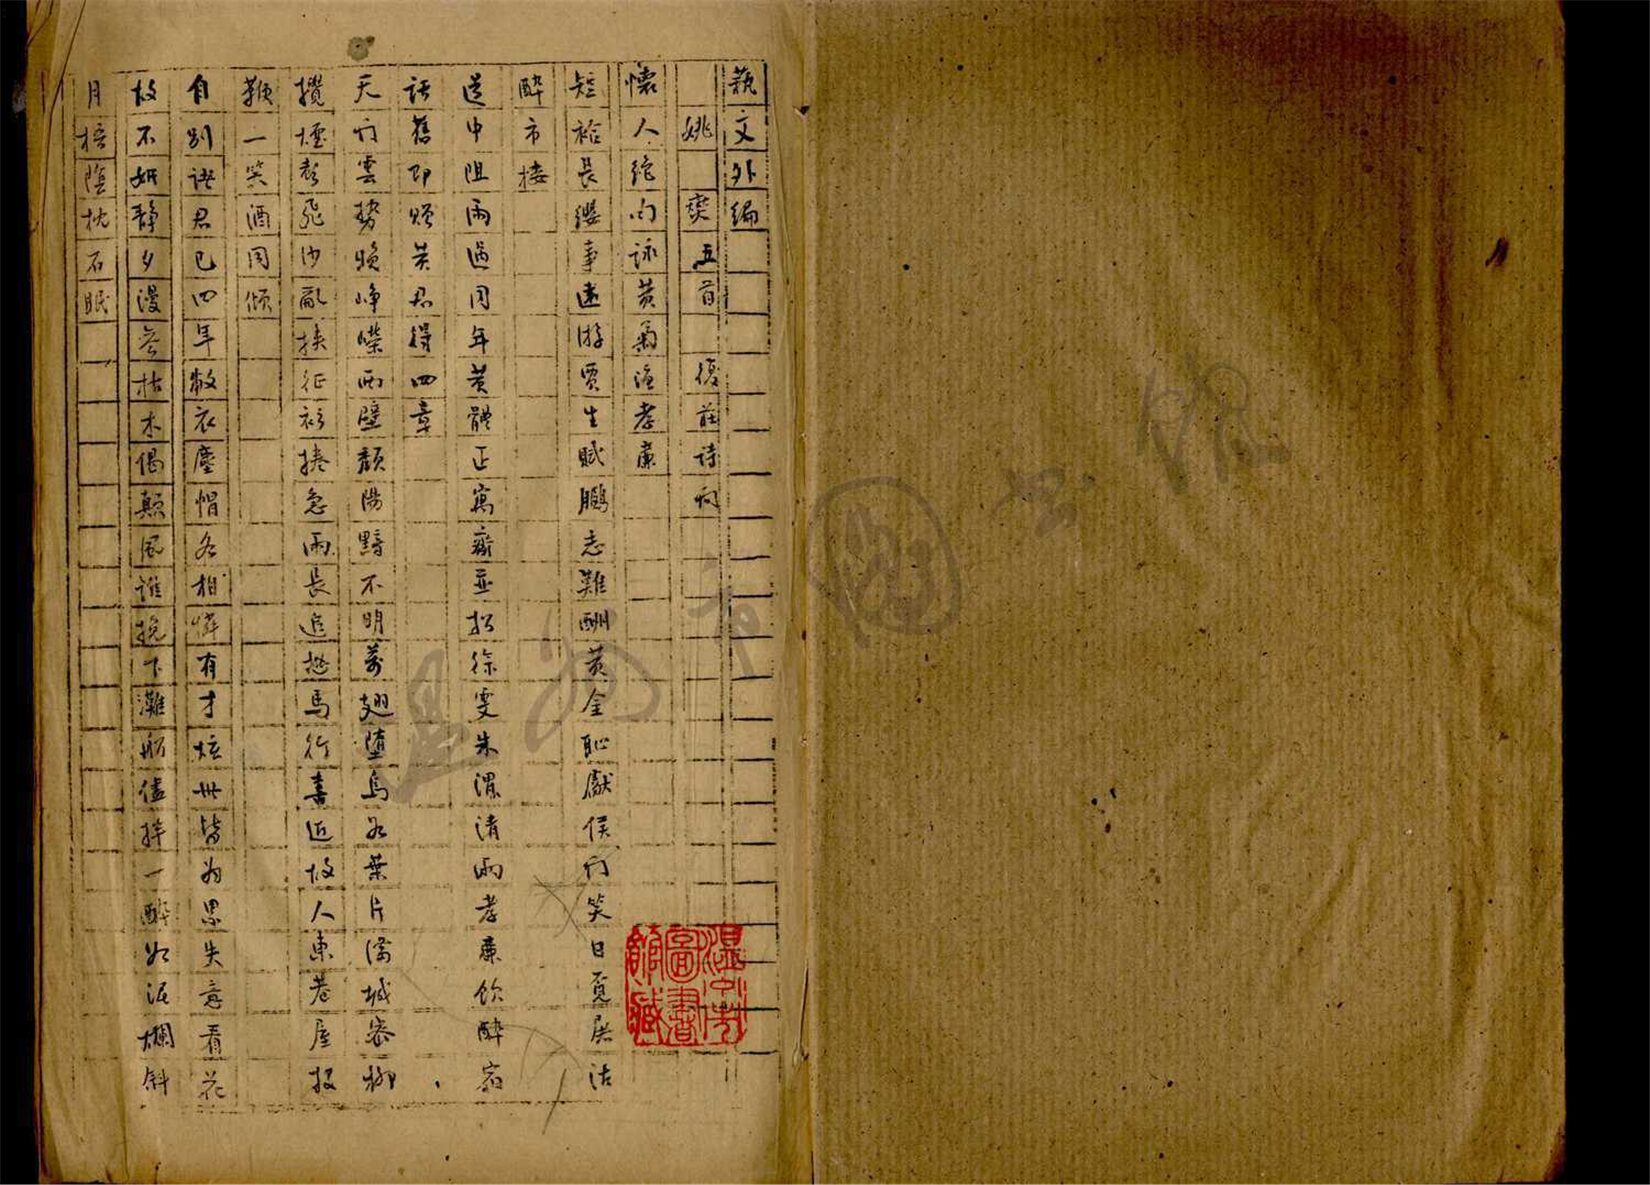 藝文外編
姚燮五首 復莊詩問
懷人絕句詠黃菊漁孝廉
短褐長纓事遠游賈生賦鵩志難酬黃金恥獻侯門笑日覓屠沽
醉市樓
道中阻雨過同年黃體正寓齋並招徐雯朱渭清兩孝廉飲醉宿
話舊即贈黃君得四章
天門雲勢煥崢嶸兩壁頹陽黯不明萬翅墮烏如葉片滿城密柳
攪煙聲飛沙亂挾征衫捲急雨長追愁馬行喜近故人東巷屋投
鞭一笑酒同傾
自別諸君已四年敝衣塵帽各相憐有才炫世皆為累失意看花
故不妍靜夕漫參枯木偈顛風誰挽下灘船儘拌一醉如泥爛斜
月梧陰枕石眠
溫州市圖書館藏
溫州市圖書館